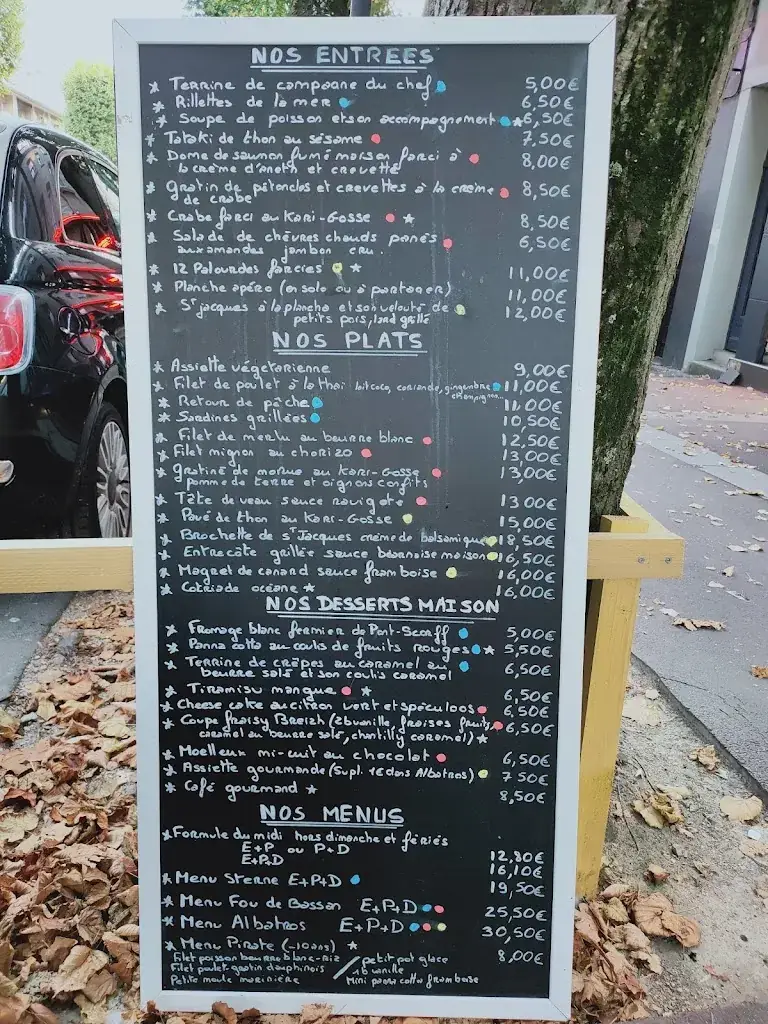 NOS ENTREES
* Terrine de campagne du chef 5,00€
* Rillettes de la mer 6,50€
* Soupe de poisson et son accompagnement * 6,50€
* Tataki de thon au sésame 7,50€
* Dome de saumon fumé maison farci à 8,00€
la crème d'aneth et crevette
* Gratin de pétoncles et crevettes à la crème 8,50€
de crabe
* Crabe farci au Kari-Gosse * 8,50€
* Salade de chèvres chauds panés 6,50€
aux amandes jambon cru.
* 12 Palourdes farcies * 11,00€
* Planche apéro (en solo ou à partager) 11,00€
* St jacques à la plancha et son velouté de 12,00€
petits pois, lard grillé
NOS PLATS
* Assiette végétarienne 9,00€
* Filet de poulet à la thai lait coco, coriande, gingembre 11,00€
champignon...
* Retour de pêche 11,00€
* Sardines grillées 10,50€
* Filet de merlu au beurre blanc 12,50€
* Filet mignon au chorizo 13,00€
* Gratiné de morue au Kari-Gosse 13,00€
pomme de terre et oignons confits
* Tête de veau sauce ravigote 13 00€
* Pavé de thon au Kari-Gosse 15,00€
* Brochette de St Jacques crème de balsamique 18,50€
* Entrecôte grillée sauce béarnaise maison 16,50€
* Magret de canard sauce framboise 16,00€
* Cotriade océane * 16,00€
NOS DESSERTS MAISON
* Fromage blanc fermier de Pont-Scorff 5,00€
* Panna cotta au coulis de fruits rouges * 5,50€
* Terrine de crêpes au caramel au 6,50€
beurre salé et son coulis caramel
* Tiramisu mangue * 6,50€
* Cheese cake au citron vert et spéculoos 6,50€
* Coupe fraisy Breizh (2b vanille, fraises fruits, 6,50€
caramel au beurre salé, chantilly caramel) *
* Moelleux mi-cuit au chocolat 6,50€
* Assiette gourmande (Supl. 1€ dans Albatros) 7 50€
* Café gourmand * 8,50€
NOS MENUS
* Formule du midi hors dimanche et fériés
E+P ou P+D 12,80€
E+P+D 16,10€
* Menu Sterne E+P+D 19,50€
* Menu Fou de Bassan E+P+D 25,50€
* Menu Albatros E+P+D 30,50€
* Menu Pirate (-10ans) * 8,00€
Filet poisson beurre blanc-riz / petit pot glace
Filet poulet-gratin dauphinois 1b vanille
Petite moule marinière Mini panna cotta framboise